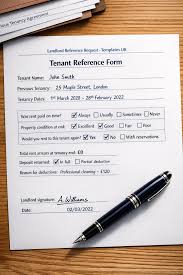 Tenancy Agreement
Landlord Reference Request - Templates UK
Tenant Reference Form
Tenant Name: John Smith
Previous Tenancy: 25 Maple Street, London
Tenancy Dates: 1st March 2020 - 28th February 2022
Was rent paid on time? Always Usually Sometimes Never
Property condition at end: Excellent Good Fair Poor
Would you rent to this tenant again? Yes No With reservations
Total rent arrears at tenancy end: £0
Deposit returned: In full Partial deduction
Reason for deductions: Professional cleaning - £120
Landlord signature: A Williams
Date: 02/03/2022